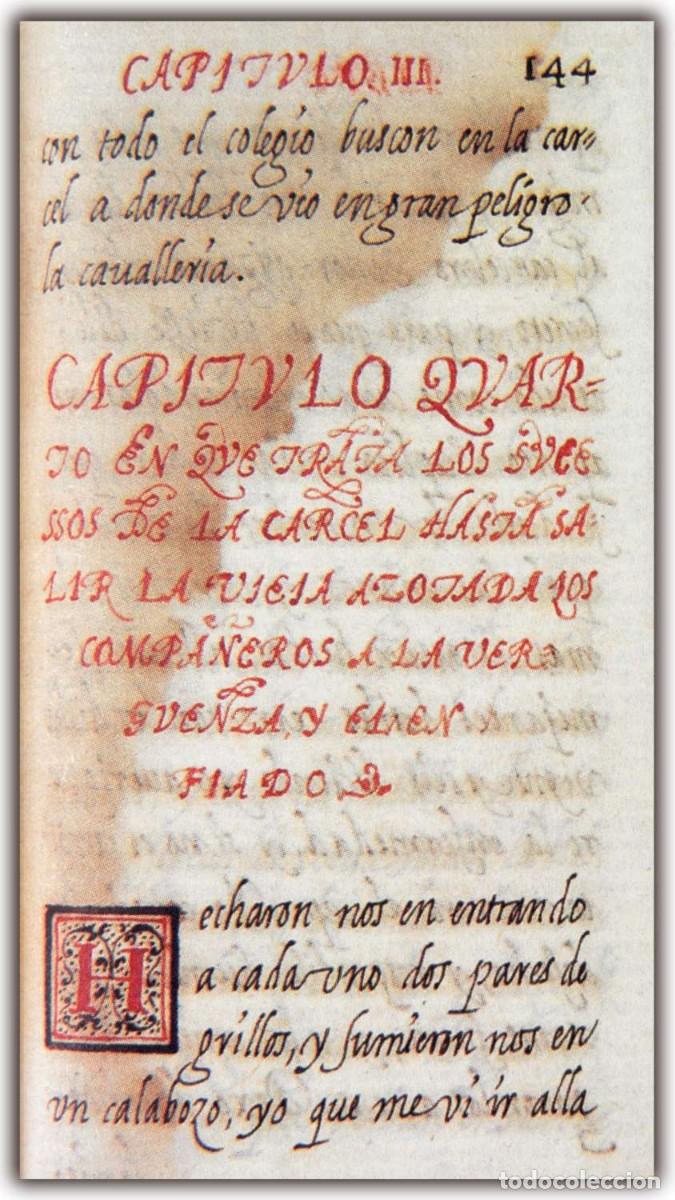 CAPITVLO III. 144
con todo el colegio buscon en la car=
cel a donde se vio en gran peligro
la cavalleria.
CAPITVLO QVAR=
TO EN QVE TRATA LOS SVCE
SSOS DE LA CARCEL HASTA SA=
LIR LA VIEIA AZOTADA LOS
COMPAÑEROS A LA VER
GVENZA, Y EL EN
FIADO
Hecharon nos en entrando
a cada uno dos pares de
grillos, y sumieron nos en
un calabozo, yo que me vi ir alla
todocoleccion